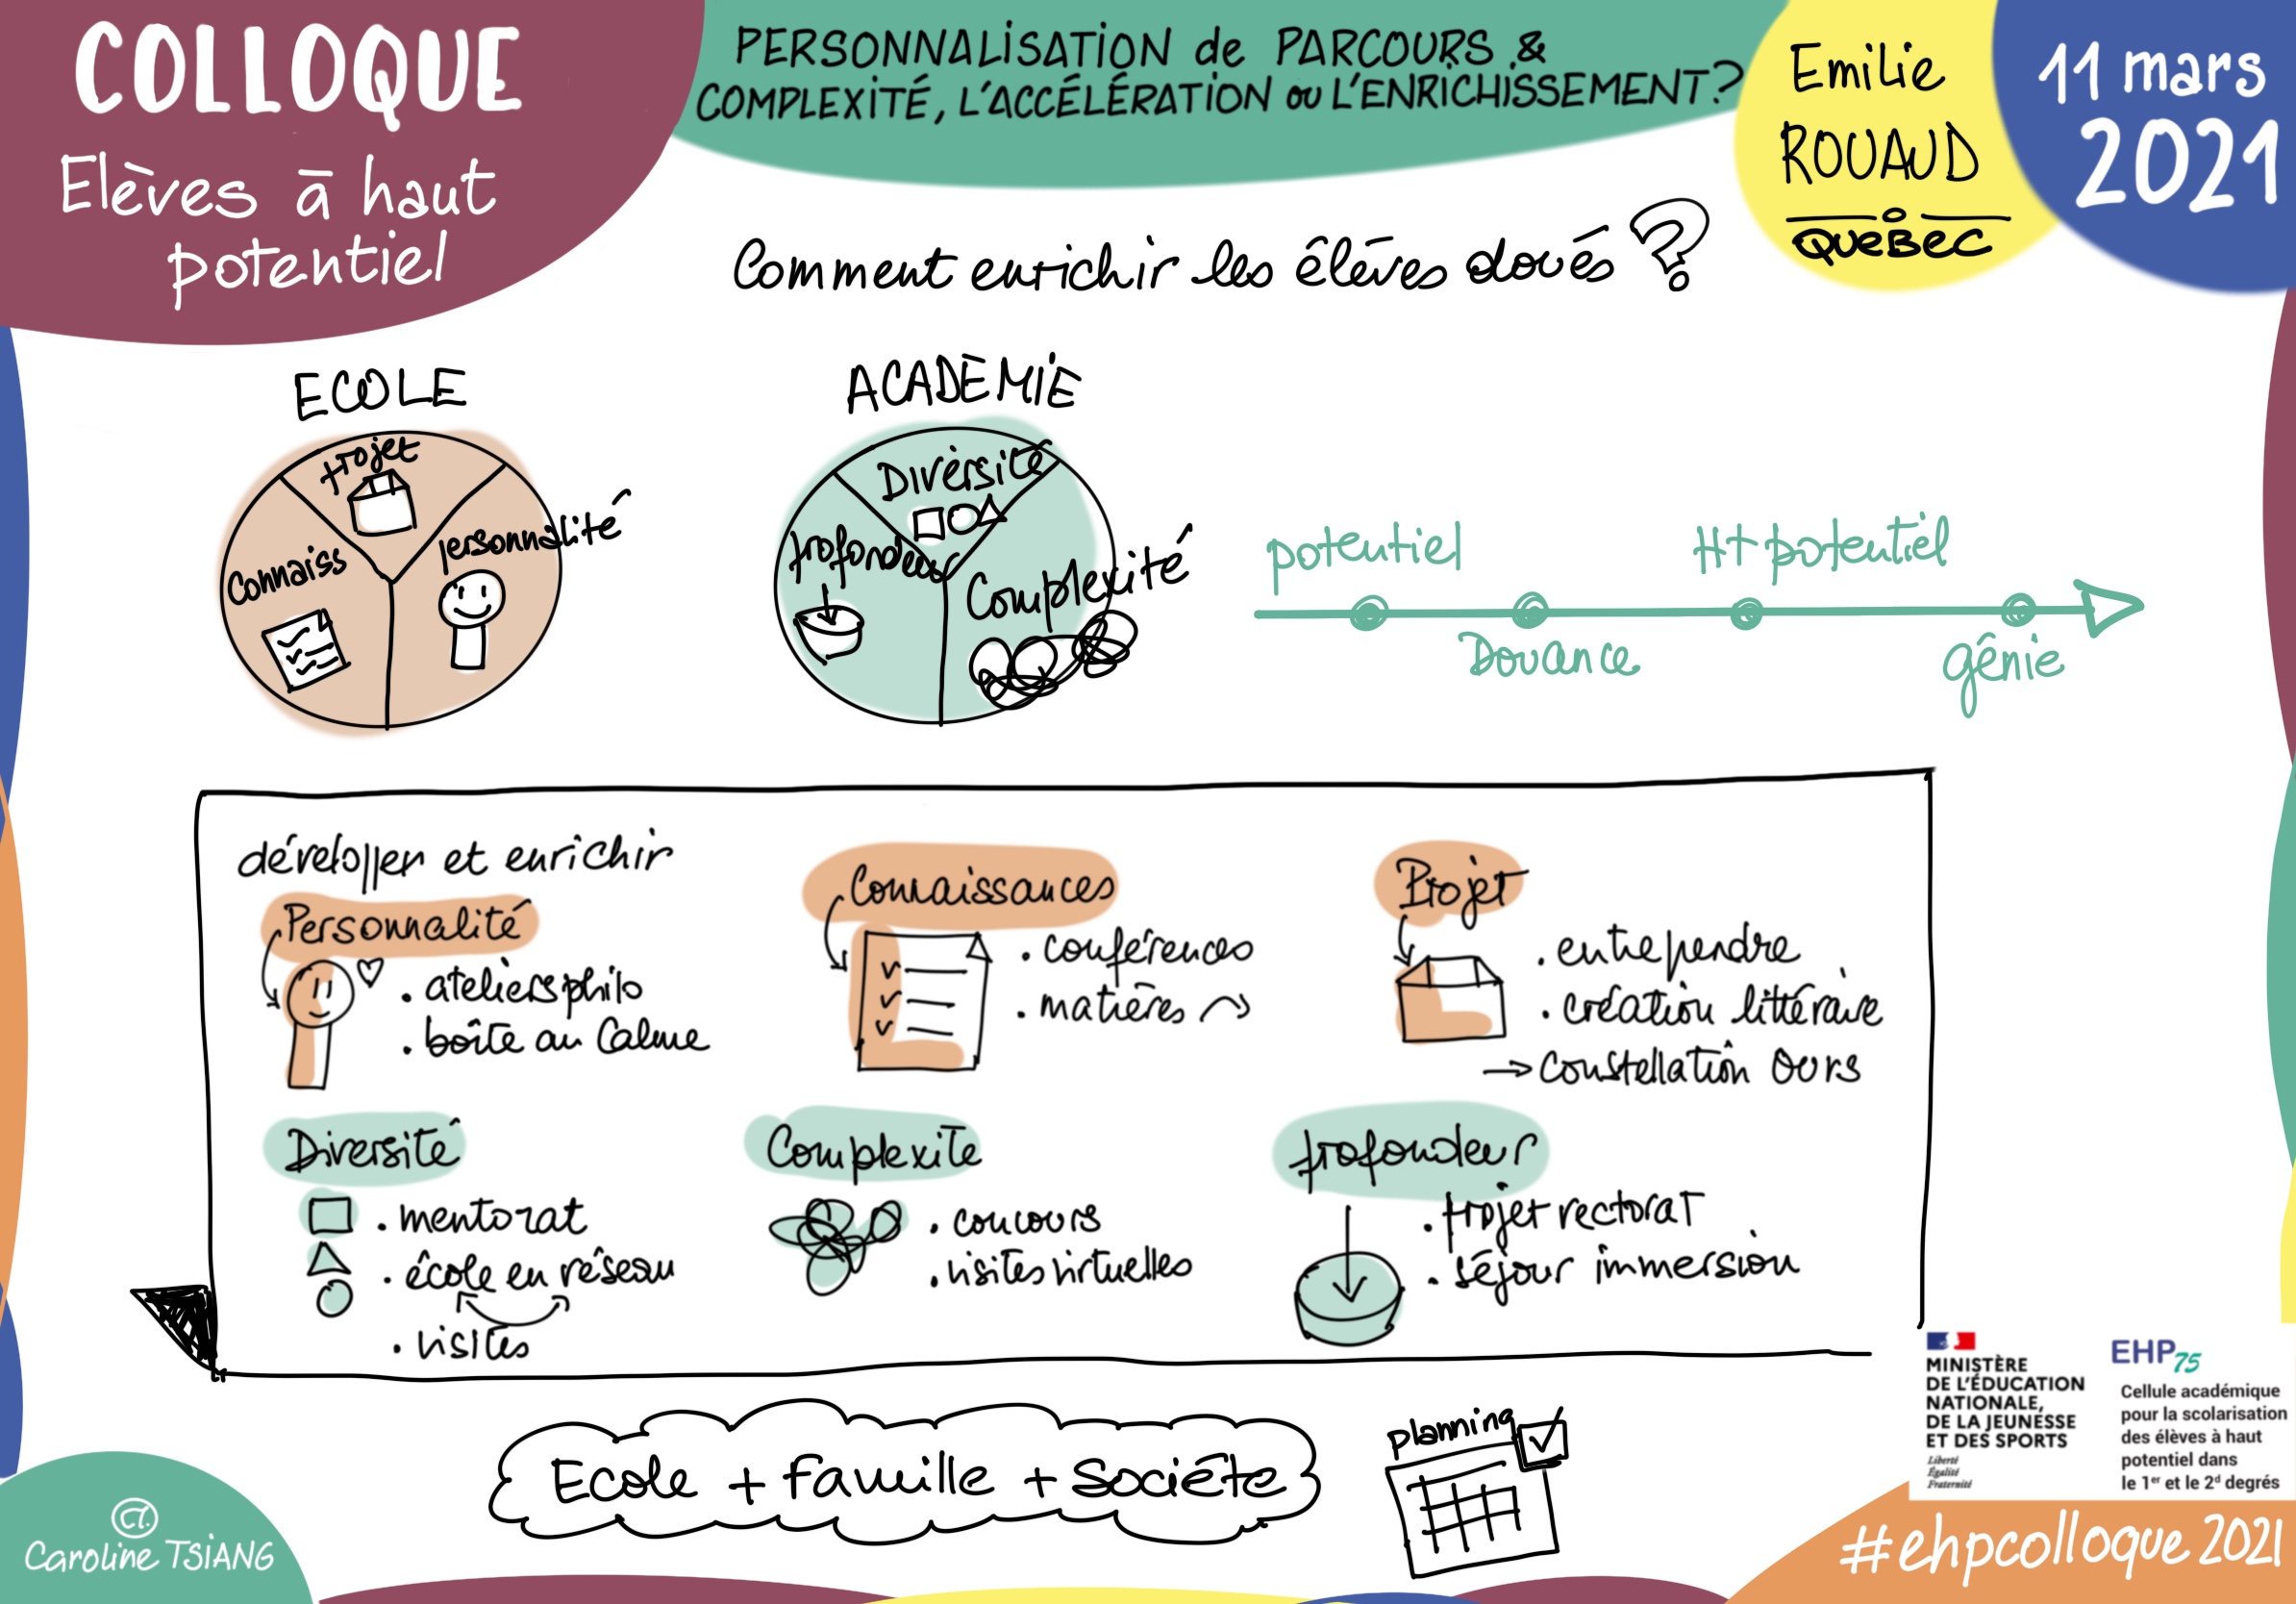 COLLOQUE
Elèves à haut
potentiel
PERSONNALISATION de PARCOURS &
COMPLEXITÉ, L'ACCÉLÉRATION ou L'ENRICHISSEMENT?
Emilie
ROUAUD
QUEBEC
11 mars
2021
Comment enrichir les élèves doués ?
ECOLE
Projet
Connaiss
Personnalité
ACADÉMIE
Diversité
Profondeur
Complexité
potentiel
Douance
Ht potentiel
génie
développer et enrichir
Personnalité
. ateliers philo
. boîte au calme
Connaissances
. conférences
. matières
Projet
. entreprendre
. création littéraire
→ Constellation Ours
Diversité
. mentorat
. école en réseau
. visites
Complexité
. concours
. visites virtuelles
Profondeur
. projet rectorat
. séjour immersion
Ecole + famille + Société
planning
MINISTÈRE
DE L'ÉDUCATION
NATIONALE,
DE LA JEUNESSE
ET DES SPORTS
Liberté
Égalité
Fraternité
EHP75
Cellule académique
pour la scolarisation
des élèves à haut
potentiel dans
le 1er et le 2d degrés
CT.
Caroline TSIANG
#ehpcolloque 2021